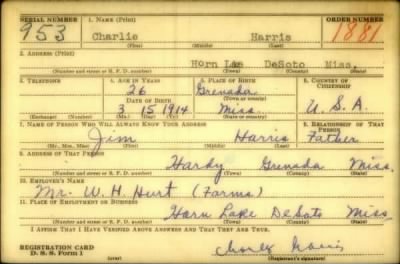 SERIAL NUMBER 1. NAME (Print) ORDER NUMBER
953 Charlie Harris 1881
(First) (Middle) (Last)
2. ADDRESS (Print)
Horn Lae DeSoto Miss.
(Number and street or R. F. D. number) (Town) (County) (State)
3. TELEPHONE 4. AGE IN YEARS 5. PLACE OF BIRTH 6. COUNTRY OF CITIZENSHIP
26 Grenada
DATE OF BIRTH (Town or county)
3 15 1914 Miss U.S.A.
(Exchange) (Number) (Mo.) (Day) (Yr.) (State or country)
7. NAME OF PERSON WHO WILL ALWAYS KNOW YOUR ADDRESS 8. RELATIONSHIP OF THAT PERSON
Jim Harris Father
(Mr., Mrs., Miss) (First) (Middle) (Last)
9. ADDRESS OF THAT PERSON
Hardy Grenada Miss
(Number and street or R. F. D. number) (Town) (County) (State)
10. EMPLOYER'S NAME
Mr. W. H. Hurt (Farms)
11. PLACE OF EMPLOYMENT OR BUSINESS
Horn Lake DeSoto Miss
(Number and street or R. F. D. number) (Town) (County) (State)
I AFFIRM THAT I HAVE VERIFIED ABOVE ANSWERS AND THAT THEY ARE TRUE.
REGISTRATION CARD
D. S. S. Form 1 (over) (Registrant's signature)